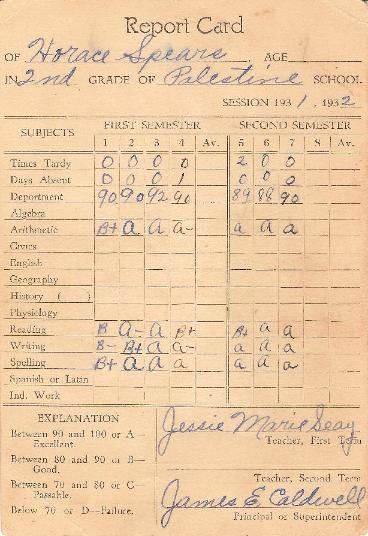 Report Card
OF Horace Spears AGE
IN 2nd GRADE OF Palestine SCHOOL
SESSION 1931, 1932
SUBJECTS FIRST SEMESTER SECOND SEMESTER
1 2 3 4 Av. 5 6 7 8 Av.
Times Tardy 0 0 0 0 2 0 0
Days Absent 0 0 0 1 0 0 0
Department 90 90 92 90 89 88 90
Algebra
Arithmetic B+ a a a- a a a
Civics
English
Geography
History ( )
Physiology
Reading B a- a B+ B+ a a
Writing B- B+ a a- a a a
Spelling B+ a a a a a
Spanish or Latin
Ind. Work
EXPLANATION
Between 90 and 100 or A—
Excellent.
Between 80 and 90 or B—
Good.
Between 70 and 80 or C—
Passable.
Below 70 or D—Failure.
Jessie Marie Seay
Teacher, First Term
Teacher, Second Term
James E. Caldwell
Principal or Superintendent